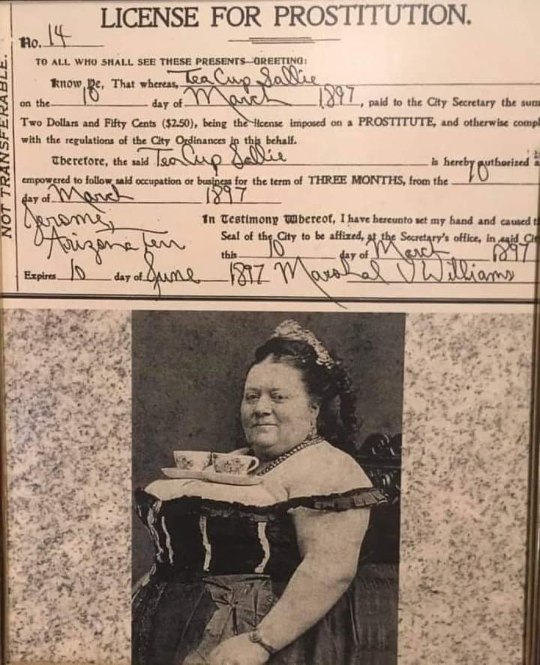 LICENSE FOR PROSTITUTION.
No. 14
TO ALL WHO SHALL SEE THESE PRESENTS—GREETING:
Know Ye, That whereas, Tea Cup Sallie
on the 10 day of March 1897, paid to the City Secretary the sum
Two Dollars and Fifty Cents ($2.50), being the license imposed on a PROSTITUTE, and otherwise compl
with the regulations of the City Ordinances in this behalf.
Therefore, the said Tea Cup Sallie is hereby authorized a
empowered to follow said occupation or business for the term of THREE MONTHS, from the 10
day of March 1897
Jerome, In Testimony Whereof, I have hereunto set my hand and caused t
Arizona Terr Seal of the City to be affixed, at the Secretary's office, in said Cit
this 10 day of March 1897
Expires 10 day of June 1897 Marshal V Williams
NOT TRANSFERABLE.